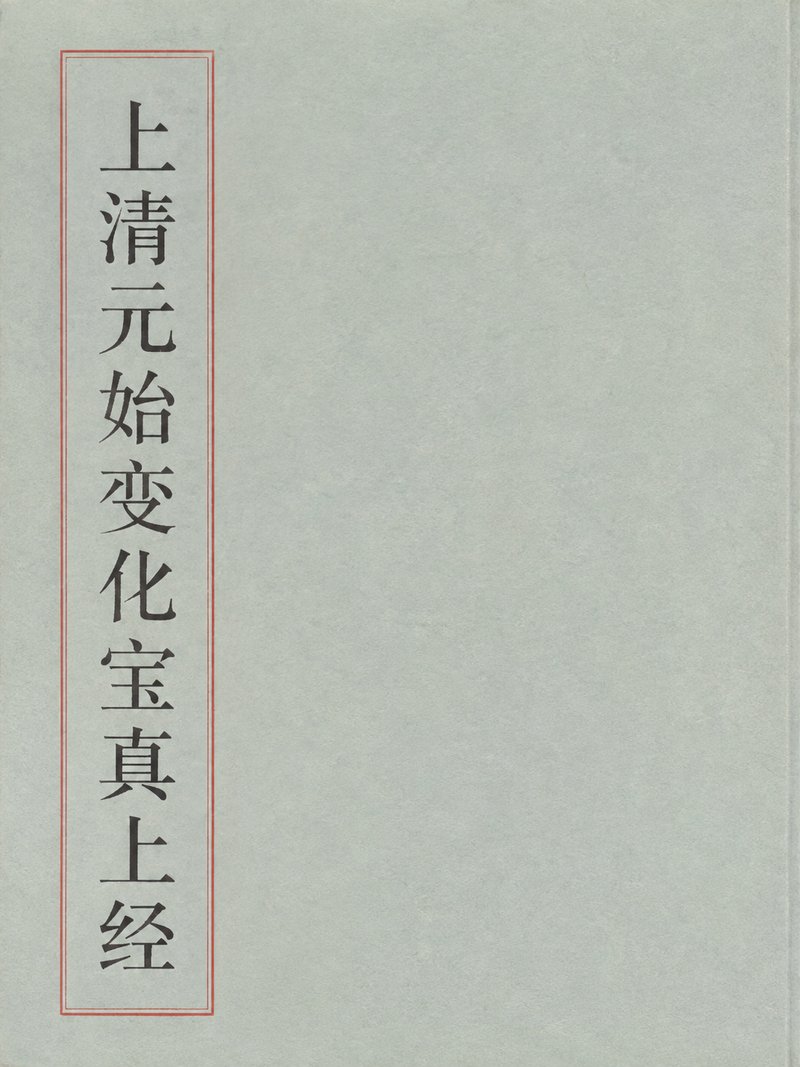 上清元始变化宝真上经